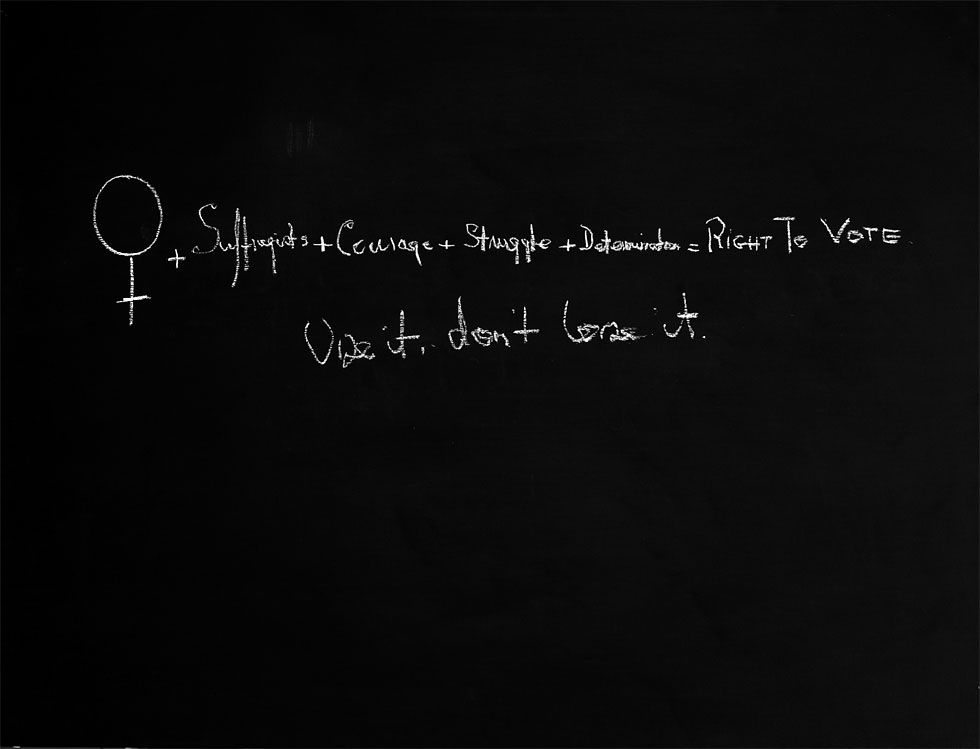 ♀ + Suffragists + Courage + Struggle + Determination = RIGHT TO VOTE.
Use it, don't lose it.